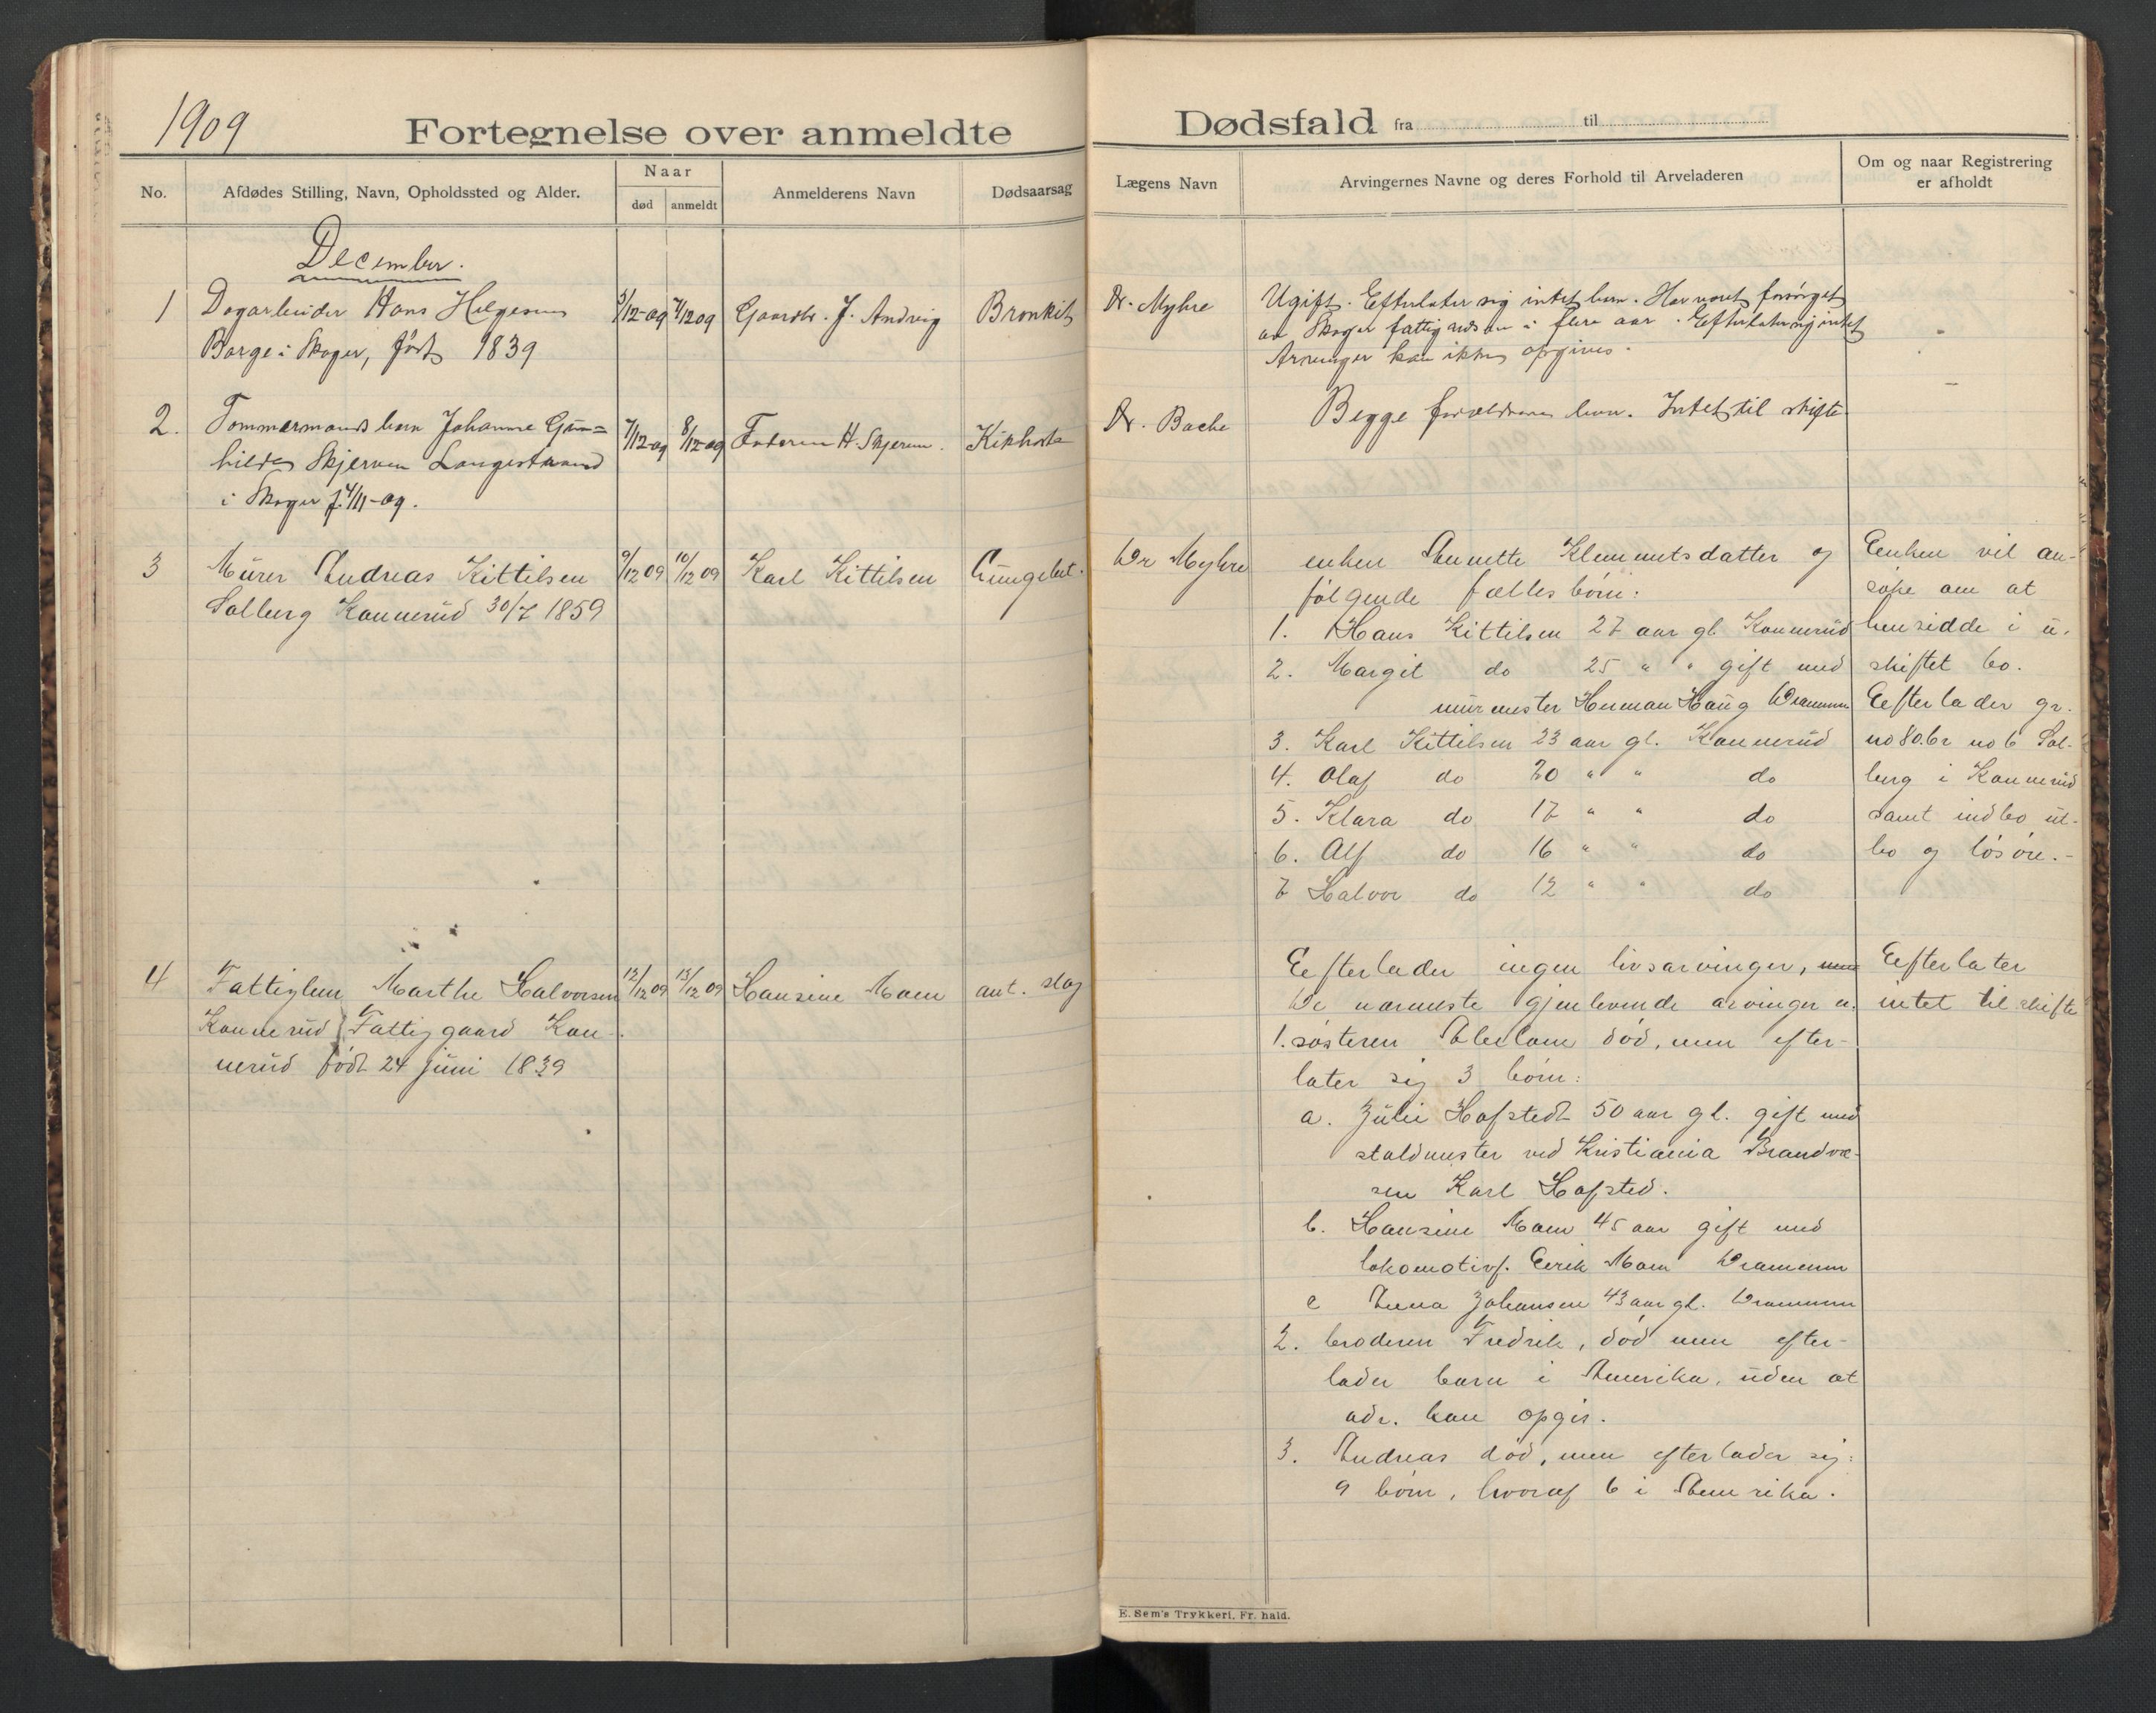 1909
Fortegnelse over anmeldte
No.
Afdødes Stilling, Navn, Opholdssted og Alder.
Naar
død
anmeldt
Anmelderens Navn
Dødsaarsag
December.
1
Dagarbeider Hans Helgesen
Borge i Skoger, født 1839
3/12-09
4/12 09
Gaardbr. J. Andvig
Bronkit
2.
Tømmermands barn Johanne Gun=
hilda Skjerven Langestrand
i Skoger f. 4/11-09.
7/12-09
8/12-09
Faderen H. Skjerven.
Kikhoste
3
Murer Andreas Kittilsen
Solberg Konnerud 30/7 1859
9/12 09
10/12 09
Karl Kittilsen
Lungebet.
4
Fattiglem Marthe Halvorsen
Konnerud Fattiggaard Kon-
nerud født 24 juni 1839
12/12 09
13/12 09
Hansine Moen
ant. slag
Dødsfald fra til
Lægens Navn
Arvingernes Navne og deres Forhold til Arveladeren
Om og naar Registrering
er afholdt
Dr. Myhre
Ugift. Efterlater sig intet barn. Har været forsørget
av Skoger fattigvæsen i flere aar. Efterlater sig intet
Arvinger kan ikke opgives.
Dr. Bache
Begge forældrenes barn. Intet til skifte
Dr Myhre
enken Annette Klemmetsdatter og
følgende fællesbørn:
1. Hans Kittilsen 27 aar gl. Konnerud
2. Margit do 25 " " gift med
murmester Herman Haug Drammen
3. Karl Kittilsen 23 aar gl. Konnerud
4. Olaf do 20 " " do
5. Klara do 17 " " do
6. Alf do 16 " " do
7 Halvor do 12 " " do
Enken vil an-
søke om at
hensidde i u-
skiftet bo.
Efterlader gr.
no 80. br no 6 Sol-
berg i Konnerud
samt indbo ut-
bo og løsøre.-
Efterlader ingen livsarvinger, men
De nærmeste gjenlevende arvinger er.
1. søsteren død, men efter-
later sig 3 børn:
a. Julie Hofstedt 50 aar gl. gift med
staldmester ved Kristiania Brandvæ-
sen Karl Hofsted.
b. Hansine Moen 45 aar gift med
lokomotivf. Eerik Moen Drammen
c Anna Johansen 43 aar gl. Drammen
2. broderen Fredrik, død men efter-
lader barn i Amerika, uden at
adr. kan opgis.
3. Andreas død, men efterlader sig:
9 børn, hvoraf 6 i Amerika.
Efterlater
intet til skifte
E. Sem's Trykkeri, Fr. hald.